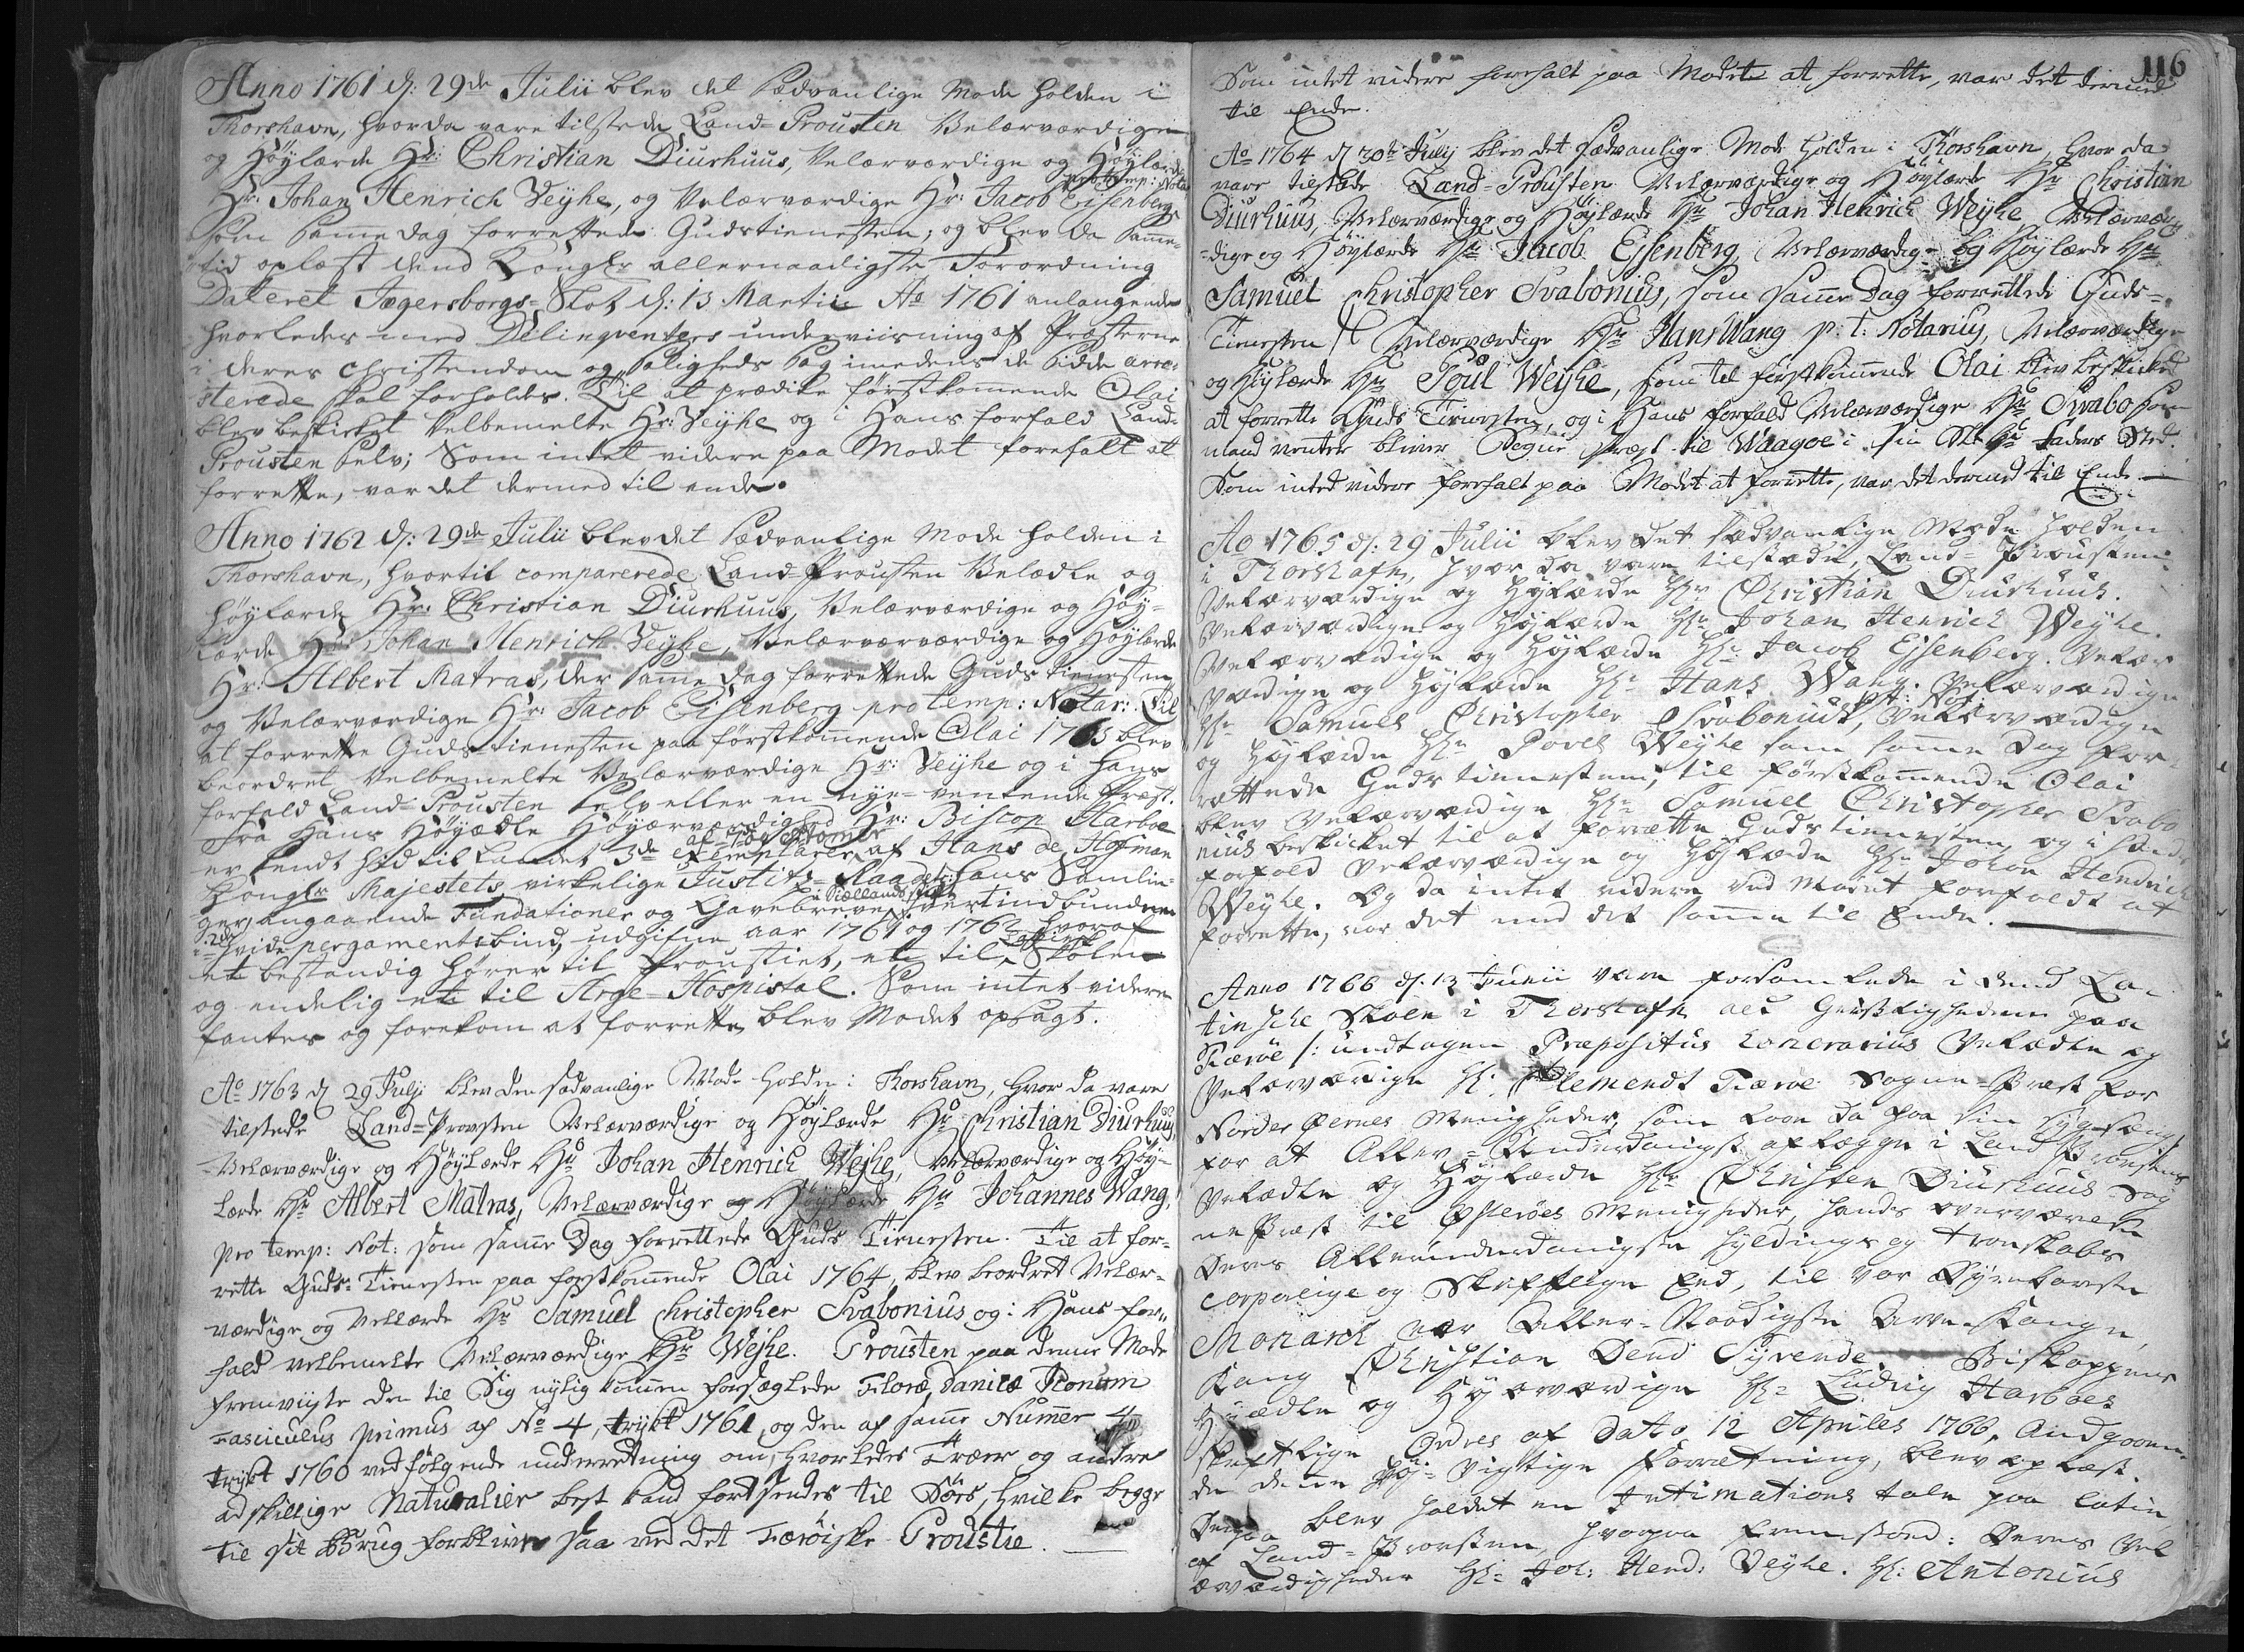 Anno 1761 d: 29de Julii blev det sædvanlige Mode holden i
Thorshavn, hvorda vare tilstede Land-Prousten Velærværdige
og Höÿlærde Hr: Christian Diurhuus, Velærværdige og Höÿlærde
pro Temp: Notar
Hr: Johan Henrich Veÿhe, og Velærværdige Hr: Jacob Eisenberg
som samme dag forrettede Gudstienesten, og blev da samme
tid oplæst dend Kongl. allernaadigste Forordning
Dateret Jægersborgs-Slot d: 13 Martii Ao 1761 anlangende
hvorledes med Delinqventers underviisning af Præsterne
i deres Christendom og Saligheds Sag imedens de sidde arre-
sterede skal forholdes. Til at prædike förstkomende Olai
blev beskicket Velbemelte Hr: Veÿhe og i Hans forfald Land-
Prousten selv; Som intet videre paa Modet forefalt at
forrette, var det dermed til ende.
Anno 1762 d: 29de Julii blev det sædvanlige Mode holden i
Thorshavn, hvortil comparerede Land-Prousten Velædle og
höÿlærde Hr: Christian Diurhuus, Velærværdige og Höÿ-
lærde Hr: Johan Henrich Veÿhe, Velærværværdige og Höÿlærde
Hr: Albert Matras, der samme dag forrettede Guds tienesten
og Velærværdige Hr: Jacob Eisenberg pro temp: Notar: Til
at forrette Guds-tienesten paa förstkommende Olai 1763 blev
beordret Velbemelte Velærværdige Hr: Veÿhe og i Hans
forfald Land-Prousten selv eller en nÿe-ventende Præst.
Fra Hans Höÿædle Höÿærværdighed Hr: Biscop Harboe
er sendt hid til Landet 3de exemplarer af Hans de Hofman
Kongl. Majestets virkelige Justitz-Raads Hans Samlin-
i Siællands stift
ger angaaende Fundationer og Gavebreve, vertindbundne
i hvide pergamentsbind, udgifne aar 1761 og 1762 hvoraf
et bestandig hörer til Proustiet, et til Skolen
og endelig et til Arge-Hospistal. Som intet videre
fantes og forekom at forrette blev Modet opsagt.
Ao 1763 d 29 Julji blev den sædvanlige Mode holden i Thorshavn, hvor da vare
tilstede Land-Provsten Velærværdige og Höÿlærde Hr Christian Diurhuus,
Velærværdige og Höÿlærde Hr Johan Henrich Weÿhe, Velærværdige og Höÿ-
lærde Hr Albert Matras, Velærværdige og Höÿlærde Hr Johannes Wang,
pro temp: Not: som samme Dag forrettede Guds Tienesten. Til at for-
rette Guds-Tienesten paa förstkommende Olai 1764, blev beordret Velær-
værdige og Vellærde Hr Samuel Christopher Svabonius og i Hans for-
fald velbemelte Velærværdige Hr Weÿhe. Prousten paa denne Mode
fremviiste den til Sig nÿlig kommen forseglede Floræ Danicæ Iconum
Fasciculus primus af No 4, trykt 1761, og den af samme Nummer 4
trykt 1760 vedfölgende underretning om, hvorledes Træer og andre
adskillige Naturalier best kand forsendes til Söes, hvilke begge
til sit Brug forbliver saa ved det Færöiske Proustie.
116
Som intet videre forefalt paa Modet at forrette, var det dermed
til Ende.
Ao 1764 d 30te Julij blev det sædvanlige Mode holden i Thorshavn, hvor da
vare tilstede Land-Prousten Velærværdige og Höÿlærde Hr Christian
Diurhuus, Velærværdige og Höÿlærde Hr Johan Henrich Weÿhe, Velærvær-
dige og Höÿlærde Hr Jacob Eisenberg, Velærværdige og Höÿlærde Hr
Samuel Christopher Svabonius, som samme Dag forrettede Guds-
Tienesten, Velærværdige Hr Hans Wang p: t: Notarius, Velærværdige
og Höÿlærde Hr Poul Weÿhe, som til förstkommende Olai blev beskicket
at forrette Guds Tienesten, og i Hans forfald Velærværdige Hr Svabo som
mand venter bliver Sogne præst til Waagoe i sin Sl. Hr Faders Sted.
Som inted videre forefalt paa Modet at forrette, var det dermed til Ende.
Ao 1765 d: 29 Julii blev det sædvanlige Mode holden
i Thorshafn, hvor da vare tilstæde, Land-Prousten
Velærværdige og Höjlærde Hr Christian Diurhuus.
Velærværdige og Höjlærde Hr Johan Henrich Weyhe.
Velærværdige og Höjlærde Hr Jacob Ejsenberg. Velær
værdige og Höjlærde Hr Hans Wang. Velærværdige
p: t: Not:
Hr Samuel Christopher Svabonius, Velærværdige
og Höjlærde Hr Povel Weyhe som samme Dag for-
rettede Gudstienesten; til förstkommende Olai
blev Velærværdige Hr Samuel Christopher Svabo
nius beskicket til at forrette Gudstienesten, og i hands
forfald Velærværdige og Höjlærde Hr Johan Hendrich
Weyhe. Og da intet videre ved Modet forfaldt at
forrette, var det med det samme til Ende.
Anno 1766 d: 12 Junii vare forsamlede i dend La-
tinsche Skole i Thorshafn all Geistligheden paa
Færöe /: undtagen Præpositus honorarius Velædle og
Velærværdige Hr: Clemendt Færoe Sogne-Præst for
Norder Öernes Menigheder, som laae da paa sin sygeseng
for at Aller-Underdanigst aflægge i Land Provstens
Velædle og Höjlærde Hr Christen Diurhuus Sog
ne Præst til Österöes Menigheder, hands overværelse
Deres Allerunderdanigste hyldings og troeskabs
corporlige og Skriftlige Eed, til vor Dÿrebarste
Monarch vor Aller-Naadigste Arve-Konge,
Kong Christian Dend Syvende. Biskoppens
Höjædle og Höjærværdige Hr Ludvig Harboes
skriftlige Ordres af Dato 12 Apriles 1766, Andgaaen-
de denne Höj-Vigtige Forretning, blev oplæst.
Derpaa blev holdet en Intimations tale paa latin
af Land-Provsten, hvorpaa fremstoed: Deres Vel
ærværdigheder Hr: Joh: Hend: Veyhe. Hr: Antonius